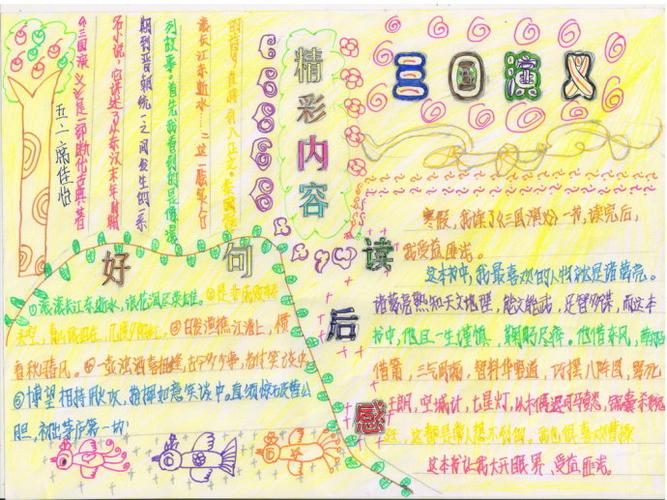 三国演义
精彩内容
《三国演义》是一部断代古典著
名小说，它讲述了从东汉末年时
期到晋朝统一之间发生的一系
列故事。首先我看到的是"滚滚
滚滚长江东逝水……
五二席佳怡
好句
①滚滚长江东逝水，浪花淘尽英雄。②是非成败转
头空，青山依旧在，几度夕阳红。③白发渔樵江渚上，惯
春秋月风。④一壶浊酒喜相逢，古今多少事，都付笑谈中。
⑤博望相持用火攻，指挥如意笑谈中。直须惊破曹公
胆，初出茅庐第一功！
读后感
寒假，我读了《三国演义》一书，读完后，
我受益匪浅。
这本书中，我最喜欢的人物就是诸葛亮。
诸葛亮熟知天文地理，能文能武，足智多谋，而这本
书中，他且一生谨慎，鞠躬尽瘁。他借东风，草船
借箭，三气周瑜，智料华容道，巧摆八阵图，骂死
王朗，空城计，七星灯，
这本书让我大开眼界，受益匪浅。